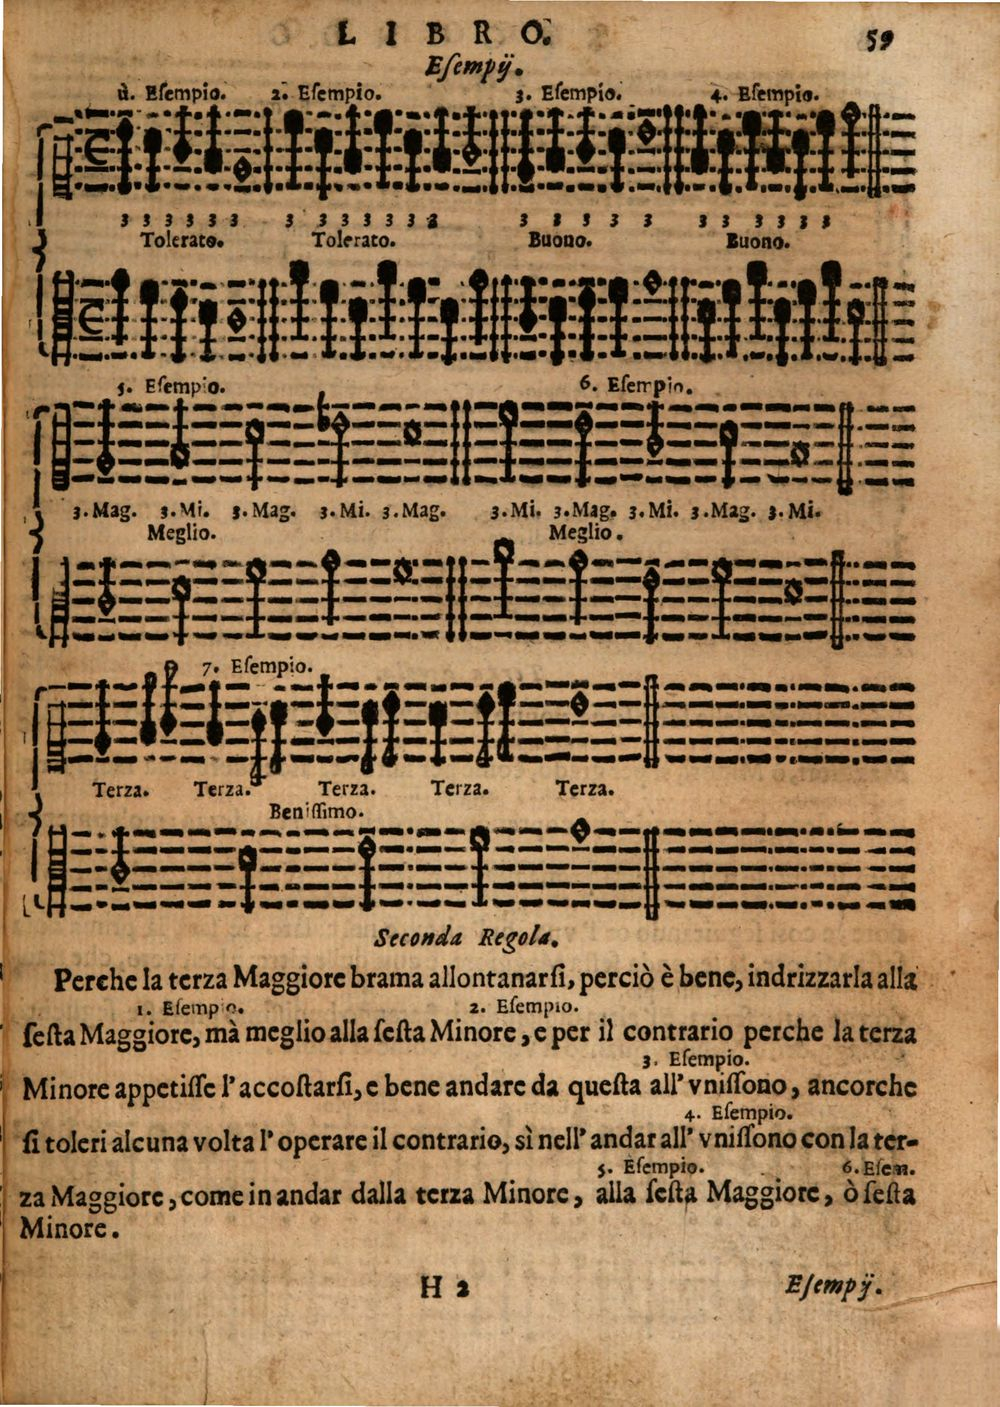 LIBRO. 59
Eſempÿ.
1. Eſempio. 2. Eſempio. 3. Eſempio. 4. Eſempio.
3 3 3 3 3 3 3 3 3 3 3 3 3 3 3 3 3 3 3 3 3 3 3
Tolerato. Tolerato. Buono. Buono.
5. Eſempio. 6. Eſempio.
3. Mag. 3. Mi. 3. Mag. 3. Mi. 3. Mag. 3. Mi. 3. Mag. 3. Mi. 3. Mag. 3. Mi.
Meglio. Meglio.
7. Eſempio.
Terza. Terza. Terza. Terza. Terza.
Beniſſimo.
Seconda Regola.
Perche la terza Maggiore brama allontanarſi, perciò è bene, indrizzarla alla
1. Eſempio. 2. Eſempio.
ſeſta Maggiore, mà meglio alla ſeſta Minore, e per il contrario perche la terza
3. Eſempio.
Minore appetiſſe l'accoſtarſi, e bene andare da queſta all' vniſſono, ancorche
4. Eſempio.
ſi toleri alcuna volta l'operare il contrario, sì nell' andar all' vniſſono con la ter-
5. Eſempio. 6. Eſem.
za Maggiore, come in andar dalla terza Minore, alla ſeſta Maggiore, ò ſeſta
Minore.
H 2 Eſempÿ.